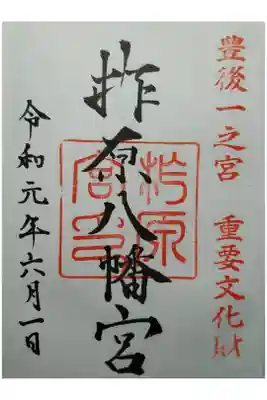 豊後一之宮 重要文化財
柞原八幡宮
令和元年六月一日